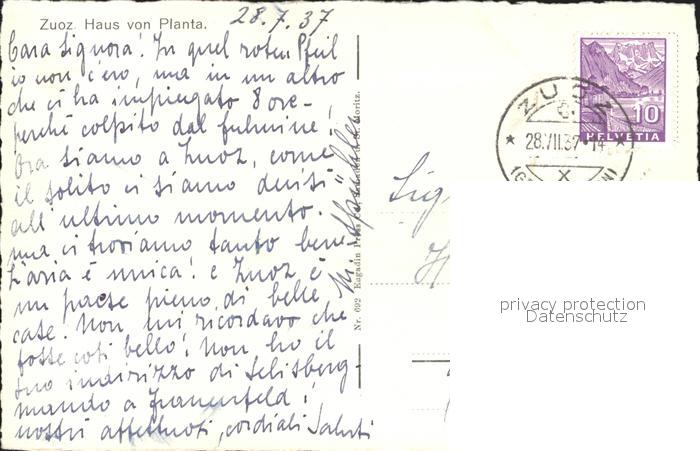 Zuoz. Haus von Planta.
28.7.37
Cara Signora! In quel roten Pfeil
io non c'ero, ma in un altro
che ci ha impiegato 8 ore -
perchè colpito dal fulmine!
Ora siamo a Zuoz, come
il solito ci siamo decisi
all'ultimo momento.
ma ci troviamo tanto bene -
L'aria è unica! e Zuoz è
un paese pieno di belle
case. Non mi ricordavo che
fosse così bello! Non ho il
suo indirizzo di Selisberg -
mando a Frauenfeld!
nostri affettuosi, cordiali saluti
Nr. 692 Engadin Press Moritz.
Sig
ZUOZ
28.VII.37-14
X
10
HELVETIA
privacy protection
Datenschutz